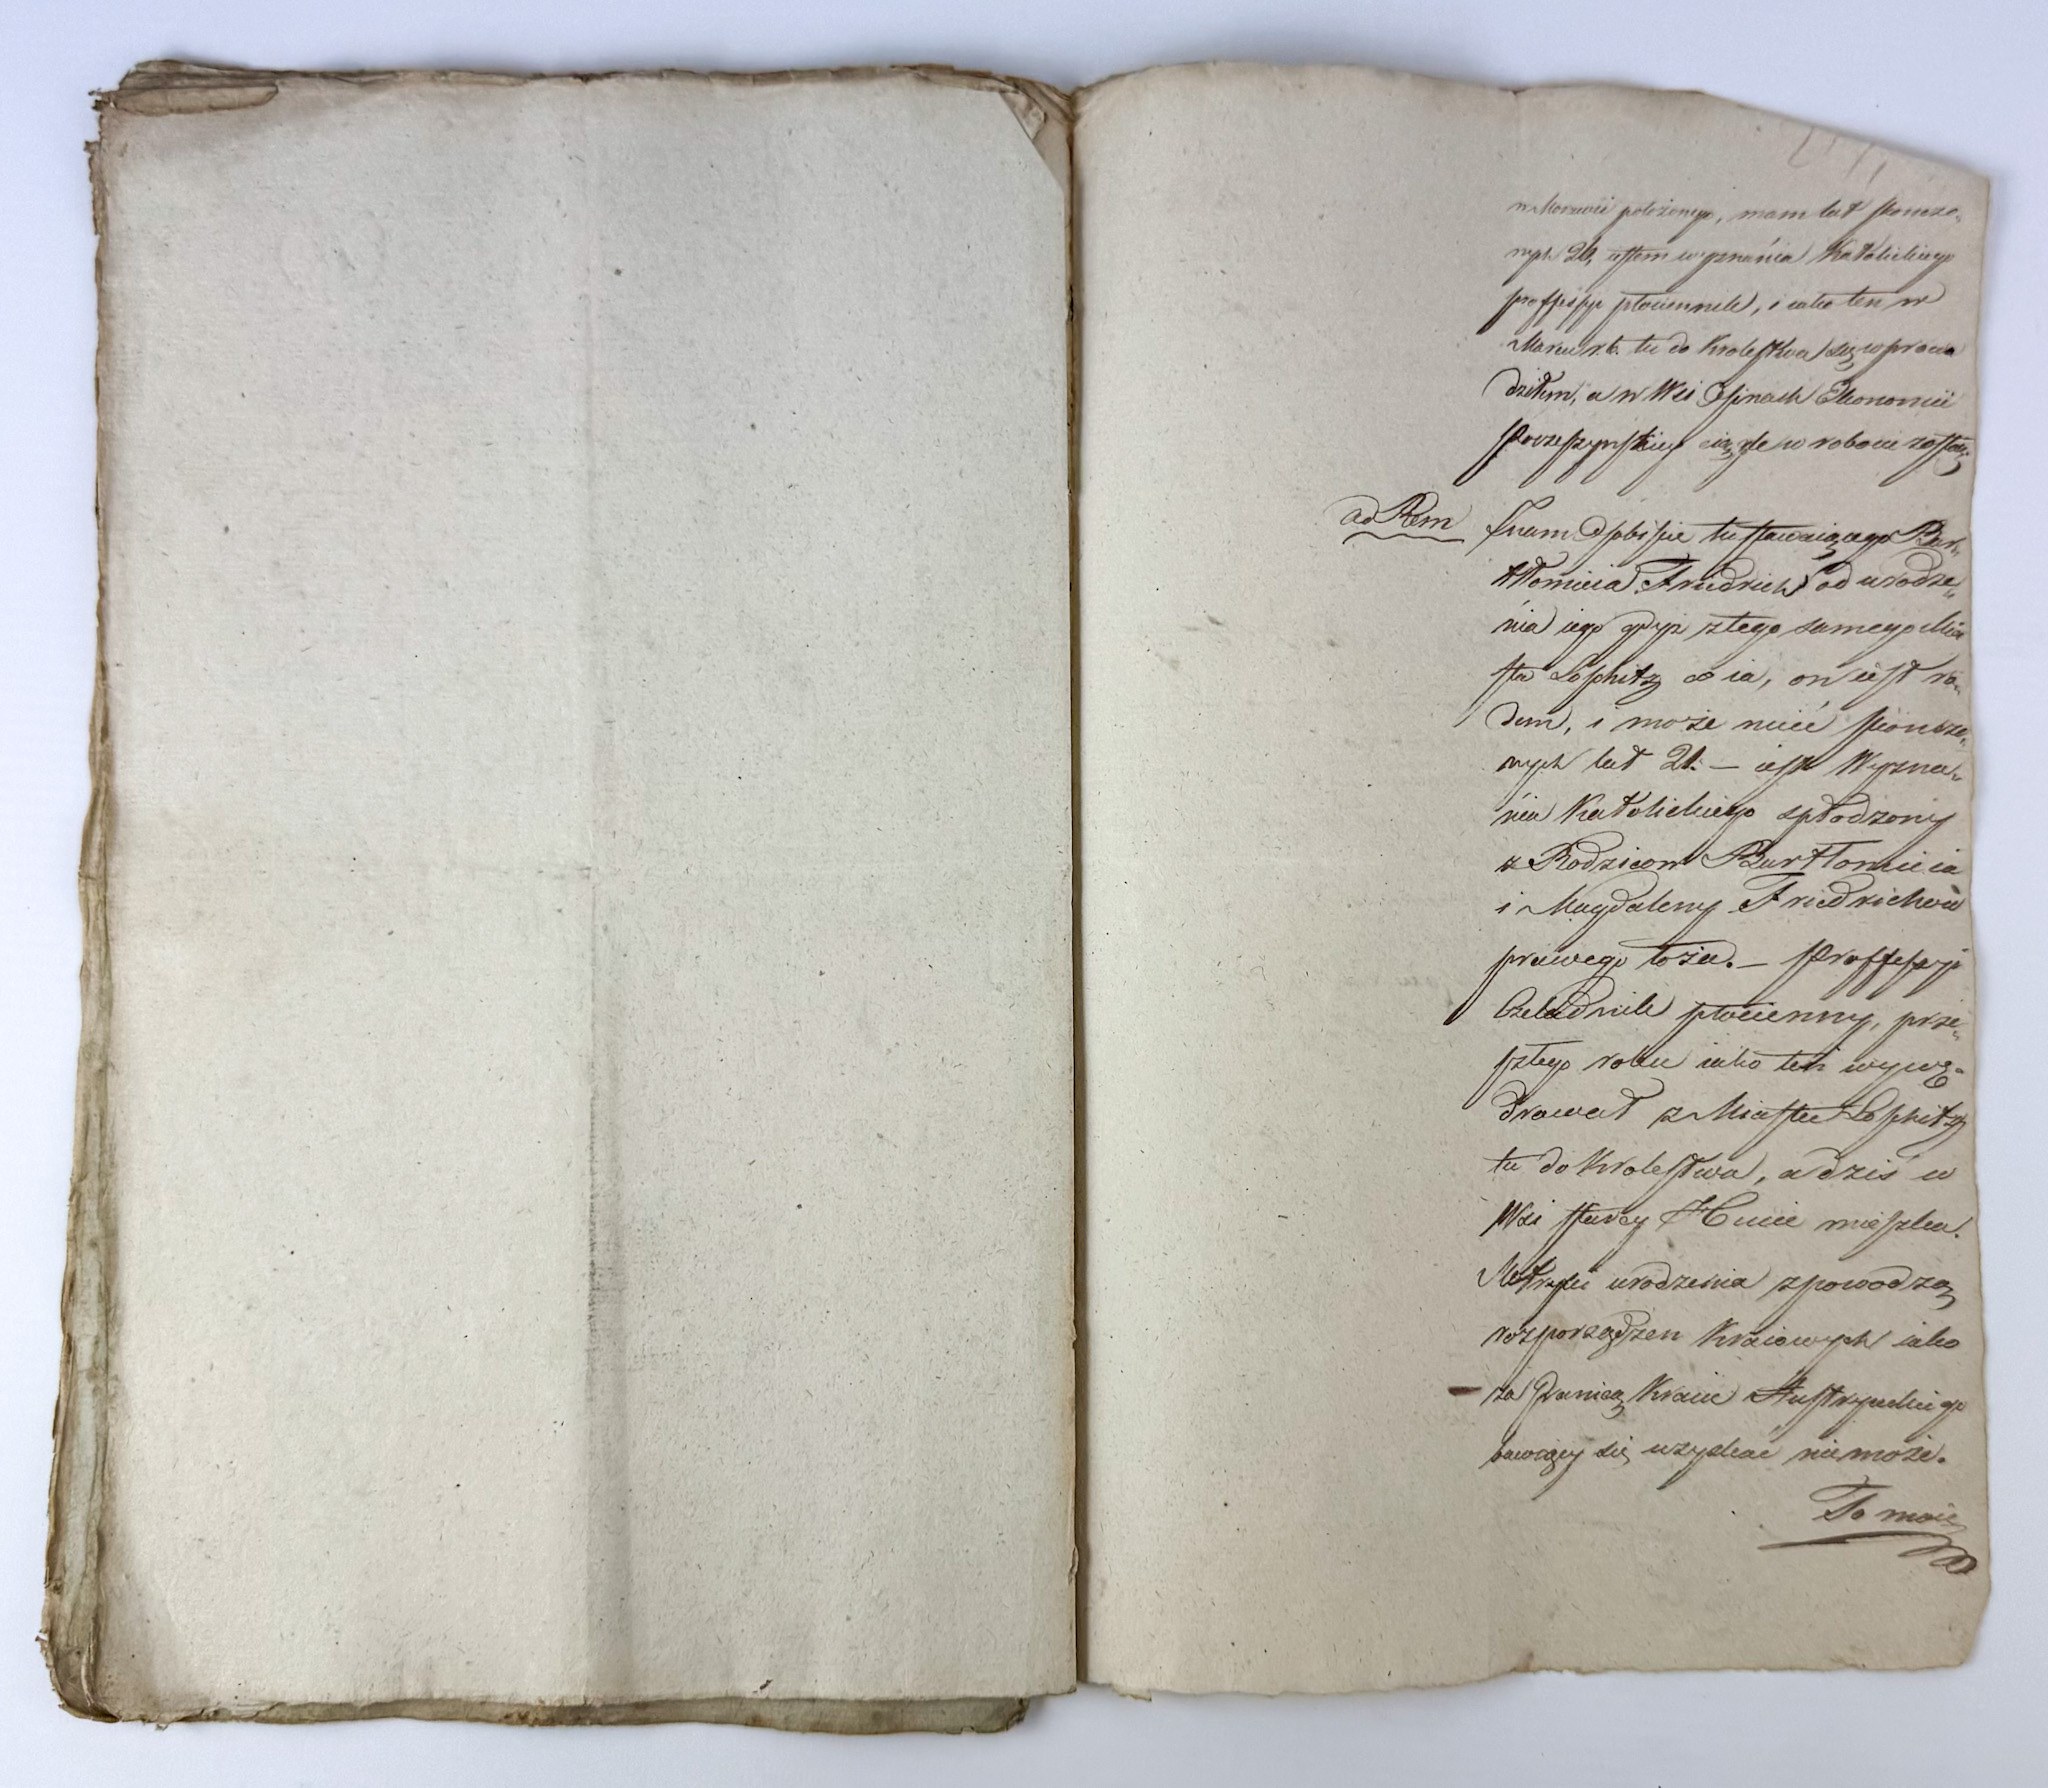 w Morawii położonego, mam lat skończo-
nych 26, estem wyznánia Katolickiego
proffessyi płociennik, i iako ten w
Marcu r. b. tu do Krolestwa się wprowa
dziłem, a w Wsi Osinach Ekonomii
ciągle w robocie zostaię
ad Rem Znam Osobiście tu stawaiącego Bar-
tłomieia Friedrich od urodze-
nia iego gdyż z tego samego Mia
sta Loschitz co ia, on iest ro-
dem, i może mieć skoncza-
nych lat 21. – iest Wyzna-
nia Katolickiego spłodzony
z Rodzicow Bartłomieia
i Magdaleny Friedrichow
prawego łoża. – Proffessyi
Czeladnik płocienny, prze-
szłego roku iako ten wywę-
drował z Miasta Loschitz
tu do Krolestwa, a dziś w
Wsi Starey Hucie mieszka.
Metryki urodzenia z powodza
rozporządzen Kraiowych iako
za Granicą Kraiu Austryackiego
bawiący się uzyskać nie może.
To moie